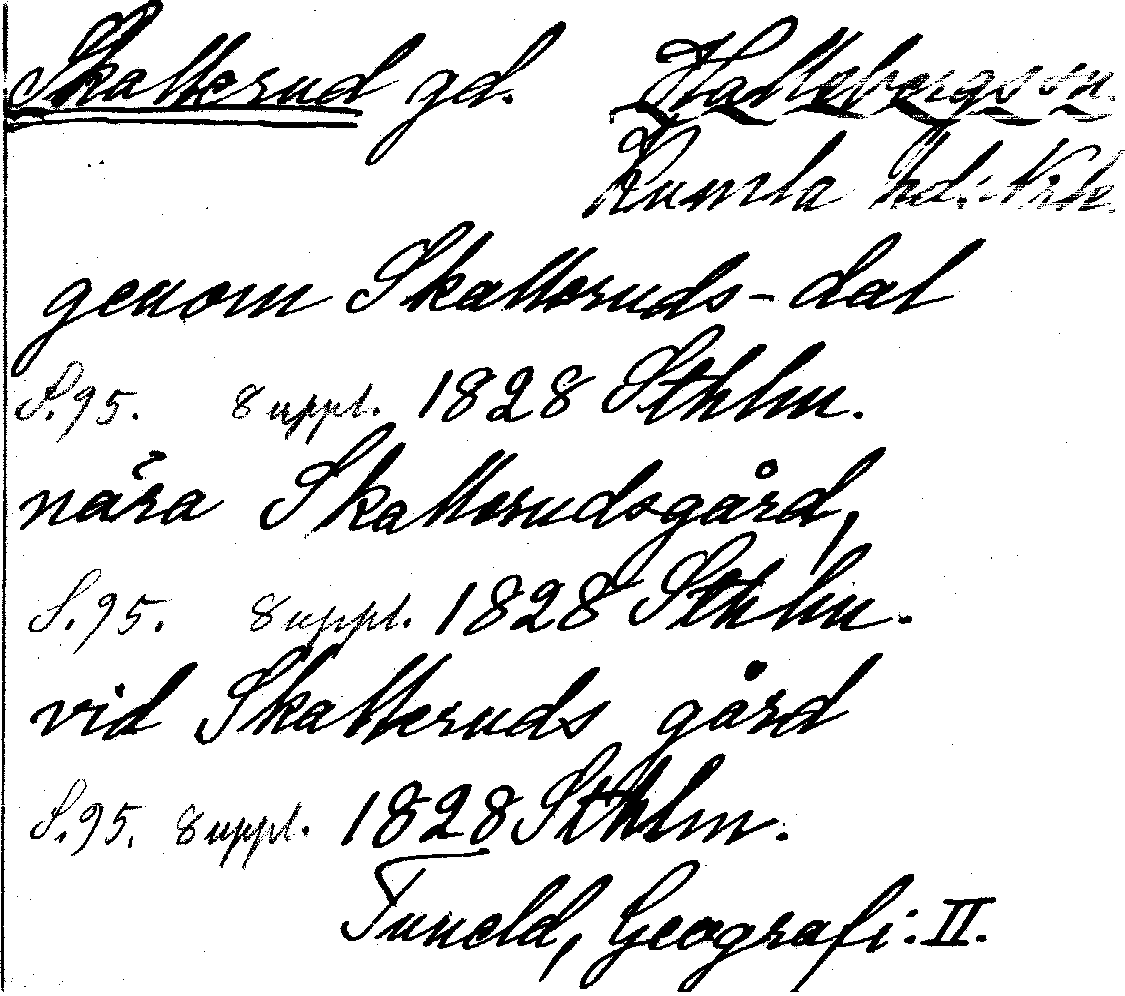 Skatterud gd. Hallsbergs sn.
Kumla hd: Närk.
genom Skatteruds-dal
S.95. 8 uppl. 1828 Sthlm.
nära Skatterudsgård,
S.95. 8 uppl. 1828 Sthlm.
vid Skatteruds gård
S.95. 8 uppl. 1828 Sthlm.
Tuneld, Geografi: II.